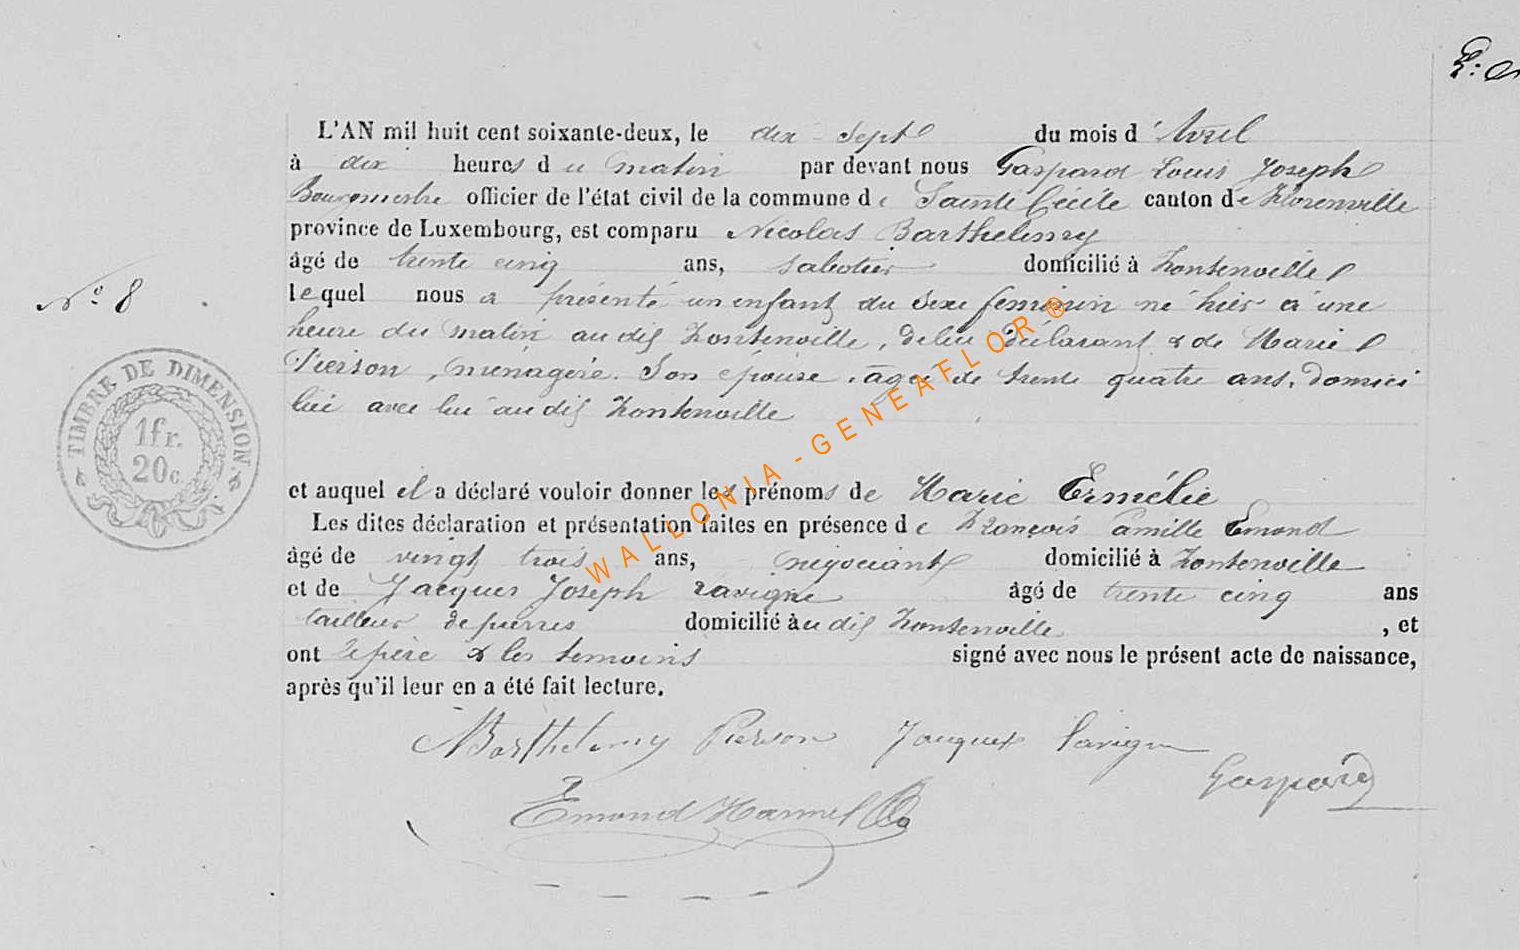 L'AN mil huit cent soixante-deux, le dix-sept du mois d'Avril
à dix heures du matin par devant nous Gaspard Louis Joseph
Bourgmestre officier de l'état civil de la commune de Sainte Cécile canton de Florenville
province de Luxembourg, est comparu Nicolas Barthelemy
âgé de trente cinq ans, sabotier domicilié à Fontenoille
lequel nous a présenté un enfant du sexe feminin né hier à une
heure du matin au dit Fontenoille, de lui déclarant & de Marie
Pierson, ménagère. Son épouse, agée de trente quatre ans, domici
lié avec lui au dit Fontenoille
N° 8
TIMBRE DE DIMENSION.
1fr.
20c
et auquel il a déclaré vouloir donner les prénoms de Marie Ermélie
Les dites déclaration et présentation faites en présence de François Camille Emond
âgé de vingt trois ans, négociant domicilié à Fontenoille
et de Jacques Joseph Lavigne âgé de trente cinq ans
tailleur de pierres domicilié au dit Fontenoille, et
ont le père & les temoins signé avec nous le présent acte de naissance,
après qu'il leur en a été fait lecture.
NBarthelemy Pierson Jacques Lavigne
Gaspard
Emond Hannel
WALLONIA-GENEAFLOR®